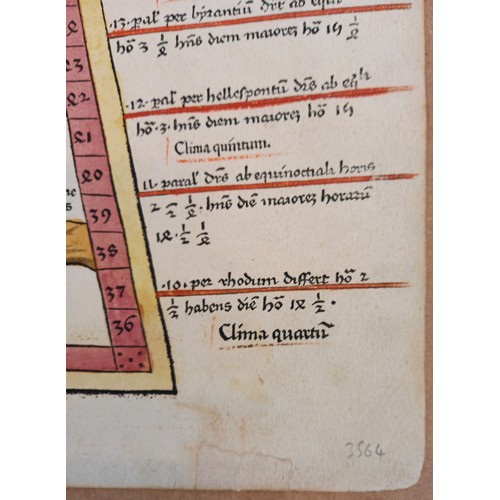 .13. pal̄ per byzantiū drs̄ ab eqͥli
hō 3 1/4 hn̄s diem maiorez hō 15 1/4
.12. pal̄ per hellespontū drs̄ ab eq̄li
hō .3. hn̄s diem maiorez hō 15
Clima quintum.
11. paral̄ drs̄ ab equinoctiali horis
2 1/2 1/4. hn̄s diē maiorez horarū
14. 1/2 1/4
.10. per rhodum differt hō 2
1/2 habens diē hō 14 1/2.
Clima quartū
43
42
41
40
39
38
37
36
3564